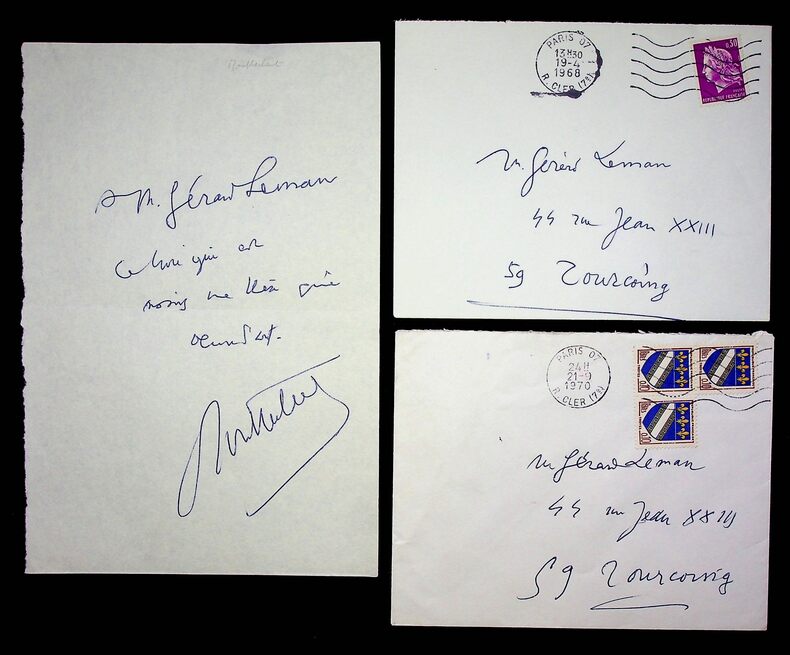 Montherlant
A M. Gérard Leman
Ce livre qui est
moins une thèse qu'un
Montherlant
PARIS 07
13H30
19-4
1968
R. CLER (7e)
0,30
REPUBLIQUE FRANÇAISE
M. Gérard Leman
44 rue Jean XXIII
59 Tourcoing
PARIS 07
24H
21-9
1970
R. CLER (7e)
0,10
0,10
0,10
M Gérard Leman
44 rue Jean XXIII
59 Tourcoing